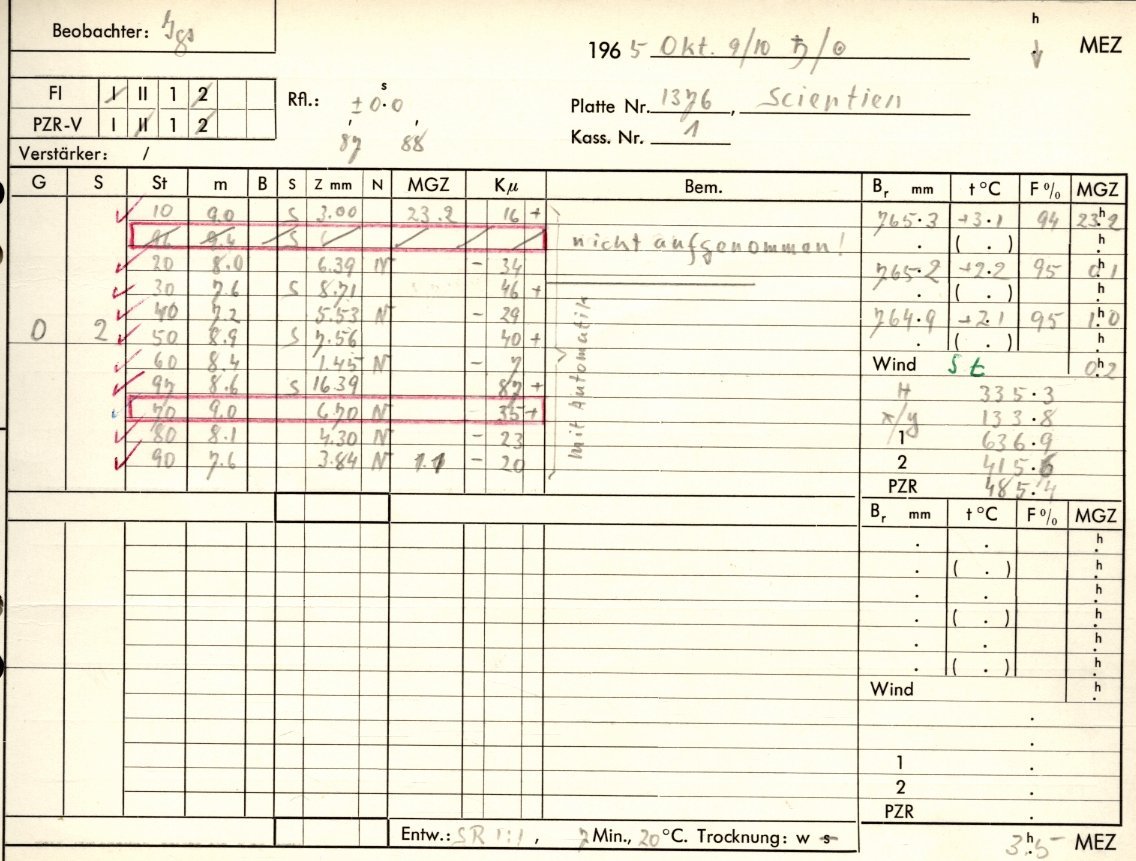 Beobachter: Jgs
1965 Okt. 9/10 ♄/☉ h MEZ
FI I II 1 2
PZR-V I II 1 2
Verstärker: /
Rfl.: ±0.0 s
87 88
Platte Nr. 1376, Scientien
Kass. Nr. 1
G S St m B S Z mm N MGZ Kμ Bem.
10 9.0 S 3.00 23.2 16 +
S nicht aufgenommen!
20 8.0 6.39 N - 34
30 7.6 S 8.71 46 +
40 7.2 5.53 N - 29
0 2 50 8.9 S 7.56 40 +
60 8.4 1.45 N - 7
97 8.6 S 16.39 87 +
70 9.0 6.70 N 35 +
80 8.1 4.30 N - 23
90 7.6 3.84 N 1.1 - 20
mit Automatik
Br mm t °C F % MGZ
765.3 +3.1 94 23h2
. ( . ) h
765.2 +2.2 95 0h1
. ( . ) h
764.9 +2.1 95 1h0
. ( . ) h
Wind St 0h2
H 335.3
x/y 133.8
1 636.9
2 415.6
PZR 485.4
Br mm t °C F % MGZ
. . h
. ( . ) h
. . h
. ( . ) h
. . h
. ( . ) h
Wind h
.
.
1 .
2 .
PZR .
Entw.: SR 1:1, 7 Min., 20 °C. Trocknung: w s
3h5 MEZ